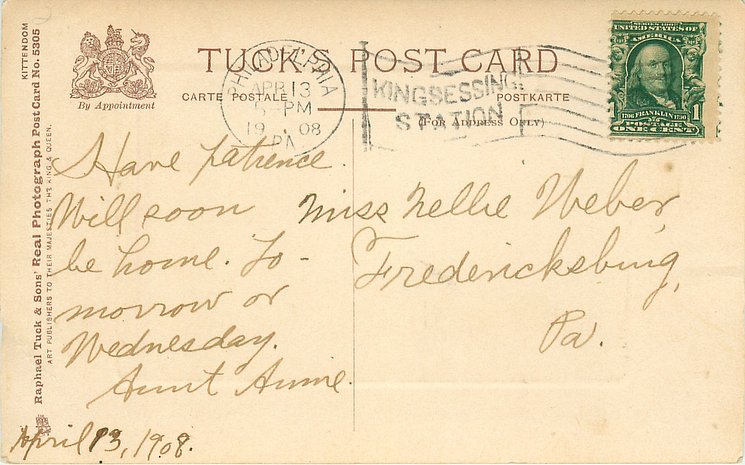 TUCK'S POST CARD
CARTE POSTALE
POSTKARTE
(FOR ADDRESS ONLY)
By Appointment
KITTENDOM
Raphael Tuck & Sons' Real Photograph Post Card No. 5305
ART PUBLISHERS TO THEIR MAJESTIES THE KING & QUEEN.
PHILADELPHIA
APR 13
PM
19 08
PA
KINGSESSING
STATION
SERIES 1902
UNITED STATES OF
AMERICA
1706 FRANKLIN 1790
1 POSTAGE 1
ONE CENT
Have patience.
Will soon
be home. To-
morrow or
Wednesday.
Aunt Annie.
April 13, 1908.
Miss Nellie Weber,
Fredericksburg,
Pa.